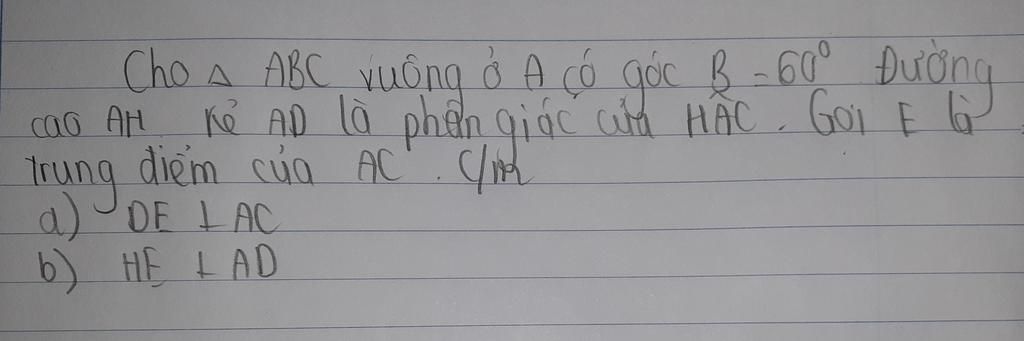 Cho △ ABC vuông ở A có góc B = 60° Đường
cao AH kẻ AD là phân giác của HAC. Gọi E là
trung điểm của AC. C/m
a) DE ⊥ AC
b) HE ⊥ AD